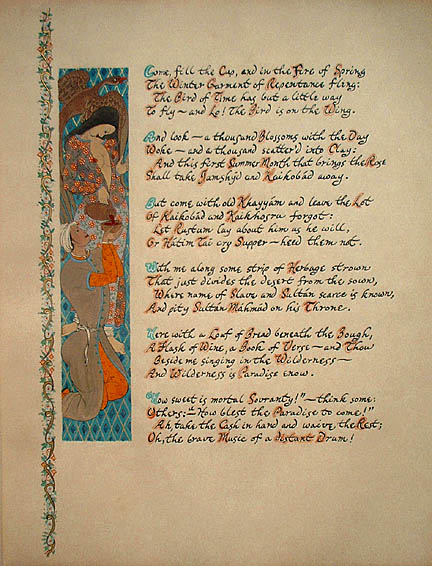 Come, fill the Cup, and in the Fire of Spring
The Winter Garment of Repentance fling:
The Bird of Time has but a little way
To fly — and Lo! The Bird is on the Wing.
And look — a thousand Blossoms with the Day
Woke — and a thousand scatter'd into Clay:
And this first Summer Month that brings the Rose
Shall take Jamshýd and Kaikobád away.
But come with old Khayyám and leave the Lot
Of Kaikobád and Kaikhosru forgot:
Let Rustum lay about him as he will,
Or Hátim Tai cry Supper — heed them not.
With me along some strip of Herbage strown
That just divides the desert from the sown,
Where name of Slave and Sultán scarce is known,
And pity Sultán Máhmúd on his Throne.
Here with a Loaf of Bread beneath the Bough,
A Flask of Wine, a Book of Verse — and Thou
Beside me singing in the Wilderness —
And Wilderness is Paradise enow.
"How sweet is mortal Sovranty!" — think some:
Others: — "How blest the Paradise to come!"
Ah, take the Cash in hand and waive the Rest;
Oh, the brave Music of a distant Drum!